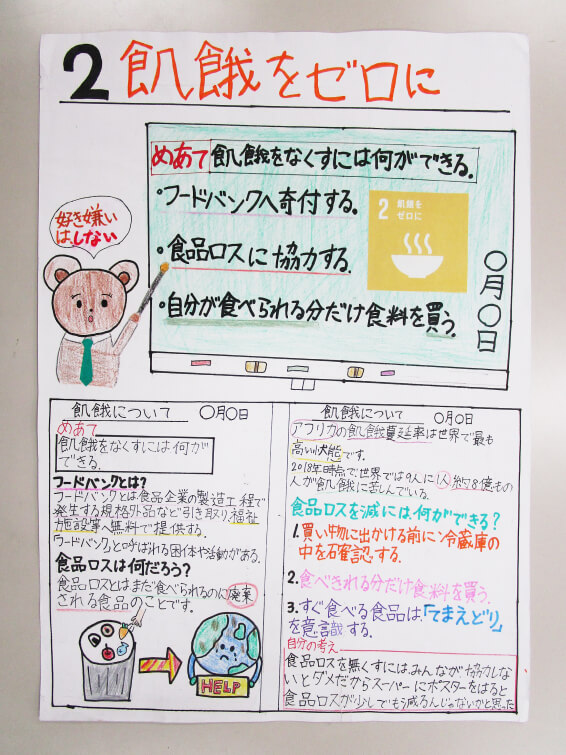 2 飢餓をゼロに
めあて 飢餓をなくすには何ができる.
・フードバンクへ寄付する.
・食品ロスに協力する.
・自分が食べられる分だけ食料を買う.
2 飢餓を
ゼロに
〇月〇日
好き嫌い
はしない
飢餓について 〇月〇日
めあて
飢餓をなくすには何が
できる.
フードバンクとは?
フードバンクとは食品企業の製造工程で
発生する規格外品など引き取り福祉
施設等へ無料で提供する.
「フードバンク」と呼ばれる団体や活動がある.
食品ロスは何だろう?
食品ロスとはまだ食べられるのに廃棄
される食品のことです.
HELP
飢餓について 〇月〇日
アフリカの飢餓蔓延率は世界で最も
高い状態です.
2018年時点で世界では9人に1人約8億もの
人が飢餓に苦しんている.
食品ロスを減には何ができる?
1.買い物に出かける前に冷蔵庫の
中を確認する.
2.食べきれる分だけ食料を買う.
3.すぐ食べる食品は「てまえどり」
を意識する.
自分の考え
食品ロスを無くすにはみんなが協力しな
いとダメだからスーパーにポスターをはると
食品ロスが少しでも減るんじゃないかと思った